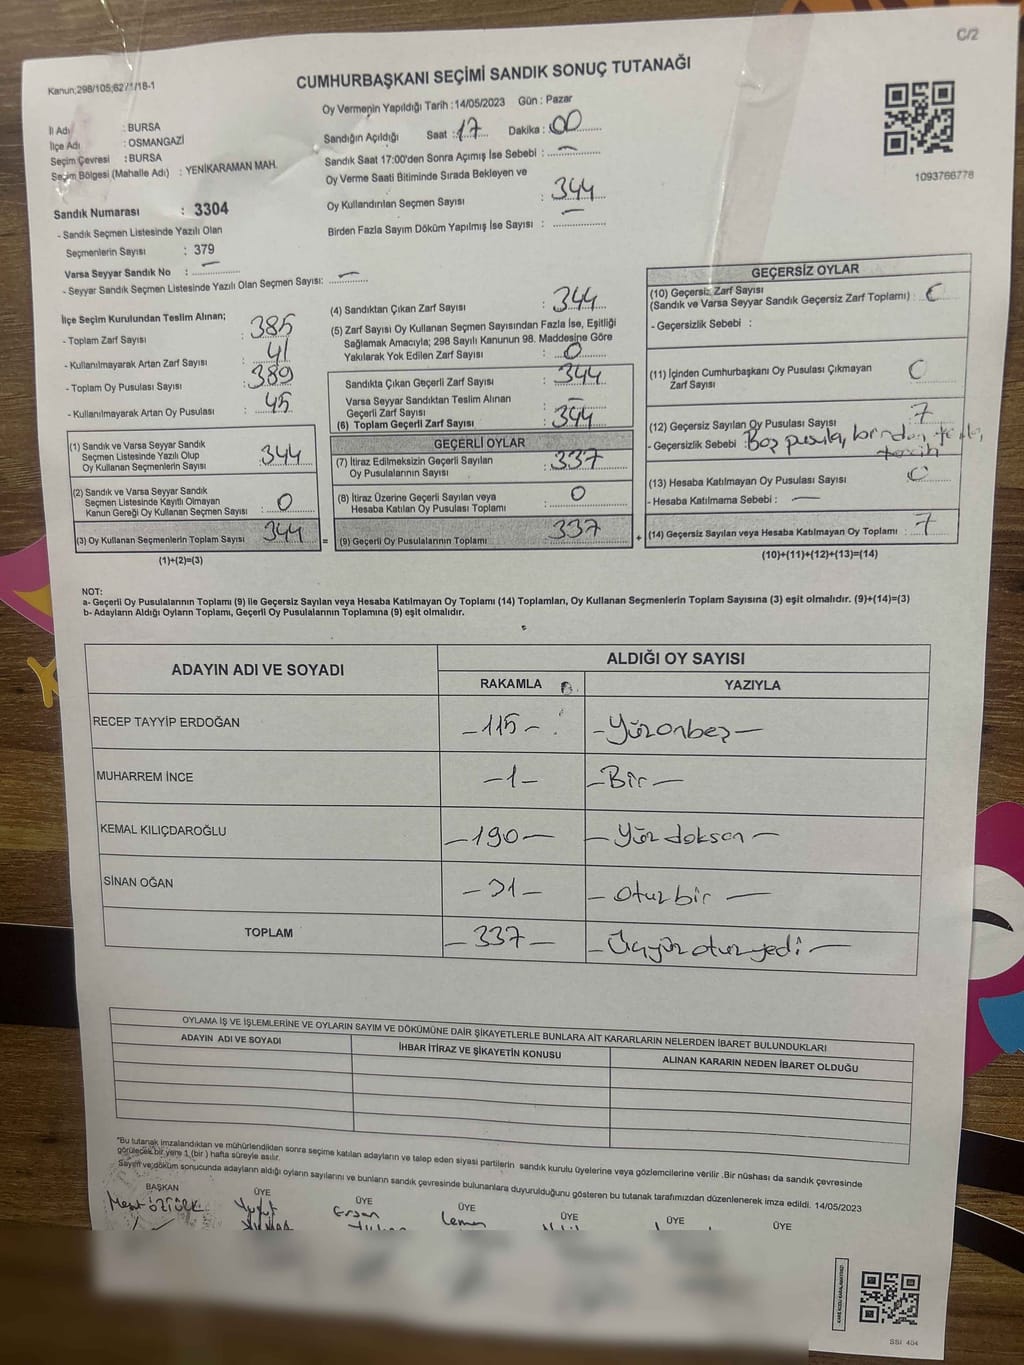 C/2
Kanun;298/105;6271/18-1
CUMHURBAŞKANI SEÇİMİ SANDIK SONUÇ TUTANAĞI
Oy Vermenin Yapıldığı Tarih : 14/05/2023 Gün : Pazar
İl Adı : BURSA
İlçe Adı : OSMANGAZİ
Seçim Çevresi : BURSA
Seçim Bölgesi (Mahalle Adı) : YENİKARAMAN MAH.
Sandığın Açıldığı Saat : 17 Dakika : 00
Sandık Saat 17:00'den Sonra Açımış İse Sebebi : —
Oy Verme Saati Bitiminde Sırada Bekleyen ve
Oy Kullandırılan Seçmen Sayısı : 344
Birden Fazla Sayım Döküm Yapılmış İse Sayısı : —
1093766778
Sandık Numarası : 3304
- Sandık Seçmen Listesinde Yazılı Olan
Seçmenlerin Sayısı : 379
Varsa Seyyar Sandık No : —
- Seyyar Sandık Seçmen Listesinde Yazılı Olan Seçmen Sayısı: —
İlçe Seçim Kurulundan Teslim Alınan;
- Toplam Zarf Sayısı : 385
- Kullanılmayarak Artan Zarf Sayısı : 41
- Toplam Oy Pusulası Sayısı : 389
- Kullanılmayarak Artan Oy Pusulası : 45
(1) Sandık ve Varsa Seyyar Sandık
Seçmen Listesinde Yazılı Olup
Oy Kullanan Seçmenlerin Sayısı : 344
(2) Sandık ve Varsa Seyyar Sandık
Seçmen Listesinde Kayıtlı Olmayan
Kanun Gereği Oy Kullanan Seçmen Sayısı : 0
(3) Oy Kullanan Seçmenlerin Toplam Sayısı 344
(1)+(2)=(3)
(4) Sandıktan Çıkan Zarf Sayısı : 344
(5) Zarf Sayısı Oy Kullanan Seçmen Sayısından Fazla İse, Eşitliği
Sağlamak Amacıyla; 298 Sayılı Kanunun 98. Maddesine Göre
Yakılarak Yok Edilen Zarf Sayısı : 0
Sandıkta Çıkan Geçerli Zarf Sayısı : 344
Varsa Seyyar Sandıktan Teslim Alınan
Geçerli Zarf Sayısı : —
(6) Toplam Geçerli Zarf Sayısı : 344
GEÇERLİ OYLAR
(7) İtiraz Edilmeksizin Geçerli Sayılan
Oy Pusulalarının Sayısı : 337
(8) İtiraz Üzerine Geçerli Sayılan veya
Hesaba Katılan Oy Pusulası Toplamı : 0
= (9) Geçerli Oy Pusulalarının Toplamı : 337 +
GEÇERSİZ OYLAR
(10) Geçersiz Zarf Sayısı
(Sandık ve Varsa Seyyar Sandık Geçersiz Zarf Toplamı) : 0
- Geçersizlik Sebebi :
(11) İçinden Cumhurbaşkanı Oy Pusulası Çıkmayan
Zarf Sayısı : 0
(12) Geçersiz Sayılan Oy Pusulası Sayısı : 7
- Geçersizlik Sebebi : Boş pusula, birden fazla, tercih
(13) Hesaba Katılmayan Oy Pusulası Sayısı : 0
- Hesaba Katılmama Sebebi : —
(14) Geçersiz Sayılan veya Hesaba Katılmayan Oy Toplamı : 7
(10)+(11)+(12)+(13)=(14)
NOT:
a- Geçerli Oy Pusulalarının Toplamı (9) ile Geçersiz Sayılan veya Hesaba Katılmayan Oy Toplamı (14) Toplamları, Oy Kullanan Seçmenlerin Toplam Sayısına (3) eşit olmalıdır. (9)+(14)=(3)
b- Adayların Aldığı Oyların Toplamı, Geçerli Oy Pusulalarının Toplamına (9) eşit olmalıdır.
ADAYIN ADI VE SOYADI ALDIĞI OY SAYISI
RAKAMLA YAZIYLA
RECEP TAYYİP ERDOĞAN –115– –Yüzonbeş–
MUHARREM İNCE –1– –Bir–
KEMAL KILIÇDAROĞLU –190– –Yüz doksan–
SİNAN OĞAN –31– –Otuzbir–
TOPLAM –337– –Üçyüzotuzyedi–
OYLAMA İŞ VE İŞLEMLERİNE VE OYLARIN SAYIM VE DÖKÜMÜNE DAİR ŞİKAYETLERLE BUNLARA AİT KARARLARIN NELERDEN İBARET BULUNDUKLARI
ADAYIN ADI VE SOYADI İHBAR İTİRAZ VE ŞİKAYETİN KONUSU ALINAN KARARIN NEDEN İBARET OLDUĞU
*Bu tutanak imzalandıktan ve mühürlendikten sonra seçime katılan adayların ve talep eden siyasi partilerin sandık kurulu üyelerine veya gözlemcilerine verilir .Bir nüshası da sandık çevresinde
görülecek bir yere 1 (bir ) hafta süreyle asılır.
Sayım ve döküm sonucunda adayların aldığı oyların sayılarını ve bunların sandık çevresinde bulunanlara duyurulduğunu gösteren bu tutanak tarafımızdan düzenlenerek imza edildi. 14/05/2023
BAŞKAN ÜYE ÜYE ÜYE ÜYE ÜYE ÜYE
ÖZTÜRK Yusuf Ersan Leman
SSİ 404